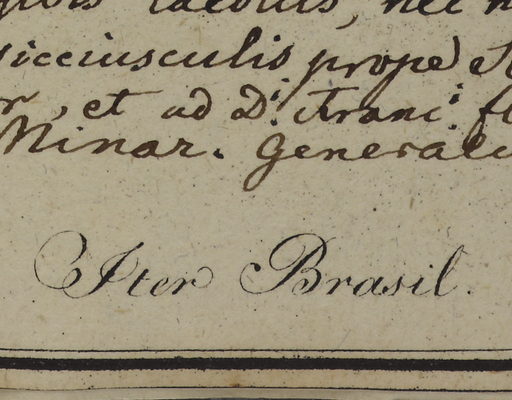 laevius, nec
sicciusculis prope
et ad D.i Franc.i fl
Minar. Generali
Iter Brasil.